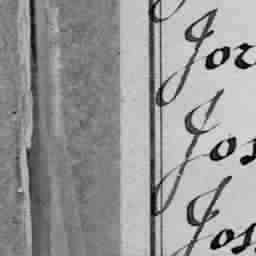 Jor
Jos
Jos